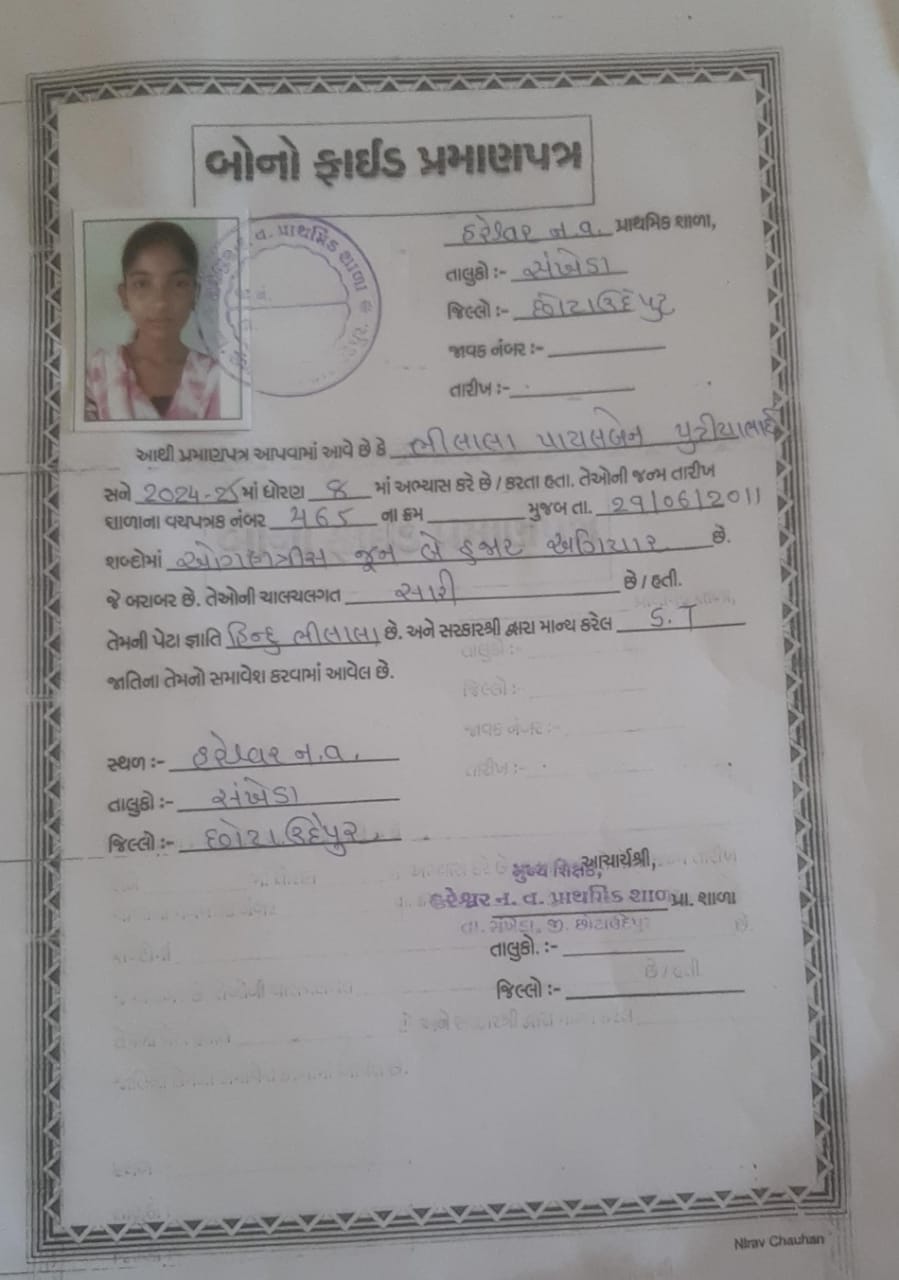 બોનો ફાઈડ પ્રમાણપત્ર
હરેશ્વર ન.વ. પ્રાથમિક શાળા,
તાલુકો :- સંખેડા
જિલ્લો :- છોટાઉદેપુર
જાવક નંબર :-
તારીખ :-
ન. વ. પ્રાથમિક શાળા
આથી પ્રમાણપત્ર આપવામાં આવે છે કે ભીલાલા પાયલબેન
સને 2024-25 માં ધોરણ 8 માં અભ્યાસ કરે છે / કરતા હતા. તેઓની જન્મ તારીખ
શાળાના વયપત્રક નંબર 465 ના ક્રમ મુજબ તા. 29/06/2011
શબ્દોમાં ઓગણત્રીસ જૂન બે હજાર અગિયાર છે.
જે બરાબર છે. તેઓની ચાલચલગત સારી છે / હતી.
તેમની પેટા જ્ઞાતિ હિન્દુ ભીલાલા છે. અને સરકારશ્રી દ્વારા માન્ય કરેલ S.T
જાતિના તેમનો સમાવેશ કરવામાં આવેલ છે.
સ્થળ :- હરેશ્વર ન.વ.
તાલુકો :- સંખેડા
જિલ્લો :- છોટાઉદેપુર
મુખ્ય શિક્ષક, આચાર્યશ્રી,
હરેશ્વર ન. વ. પ્રાથમિક શાળા પ્રા. શાળા
તા. સંખેડા, જી. છોટાઉદેપુર
તાલુકો. :-
જિલ્લો :-
Nirav Chauhan